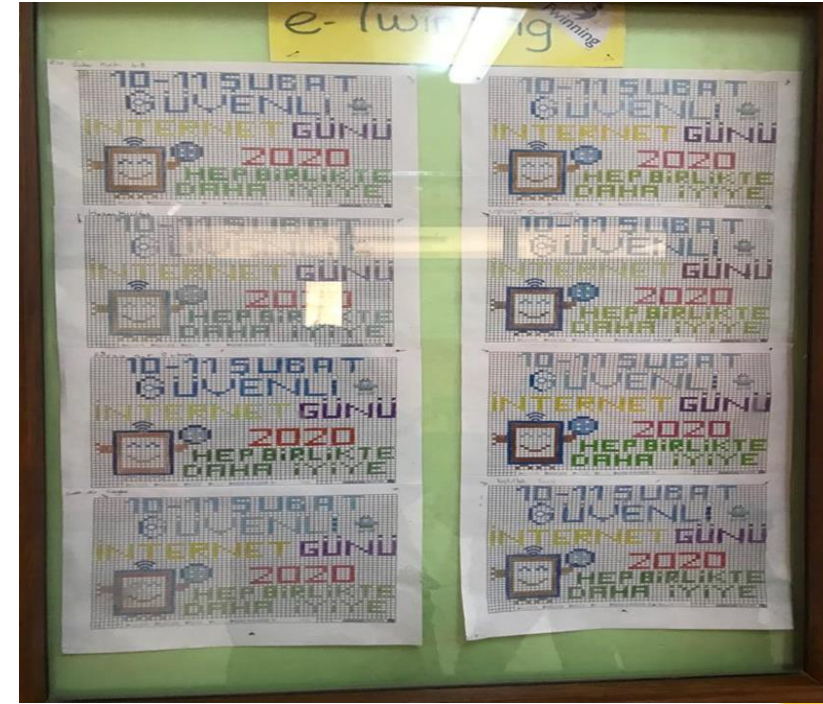 e-Twinning
Twinning
10-11 ŞUBAT
GÜVENLİ
İNTERNET GÜNÜ
2020
HEP BİRLİKTE
DAHA İYİYE
10-11 ŞUBAT
GÜVENLİ
İNTERNET GÜNÜ
2020
HEP BİRLİKTE
DAHA İYİYE
10-11 ŞUBAT
GÜVENLİ
İNTERNET GÜNÜ
2020
HEP BİRLİKTE
DAHA İYİYE
10-11 ŞUBAT
GÜVENLİ
İNTERNET GÜNÜ
2020
HEP BİRLİKTE
DAHA İYİYE
10-11 ŞUBAT
GÜVENLİ
İNTERNET GÜNÜ
2020
HEP BİRLİKTE
DAHA İYİYE
10-11 ŞUBAT
GÜVENLİ
İNTERNET GÜNÜ
2020
HEP BİRLİKTE
DAHA İYİYE
10-11 ŞUBAT
GÜVENLİ
İNTERNET GÜNÜ
2020
HEP BİRLİKTE
DAHA İYİYE
10-11 ŞUBAT
GÜVENLİ
İNTERNET GÜNÜ
2020
HEP BİRLİKTE
DAHA İYİYE